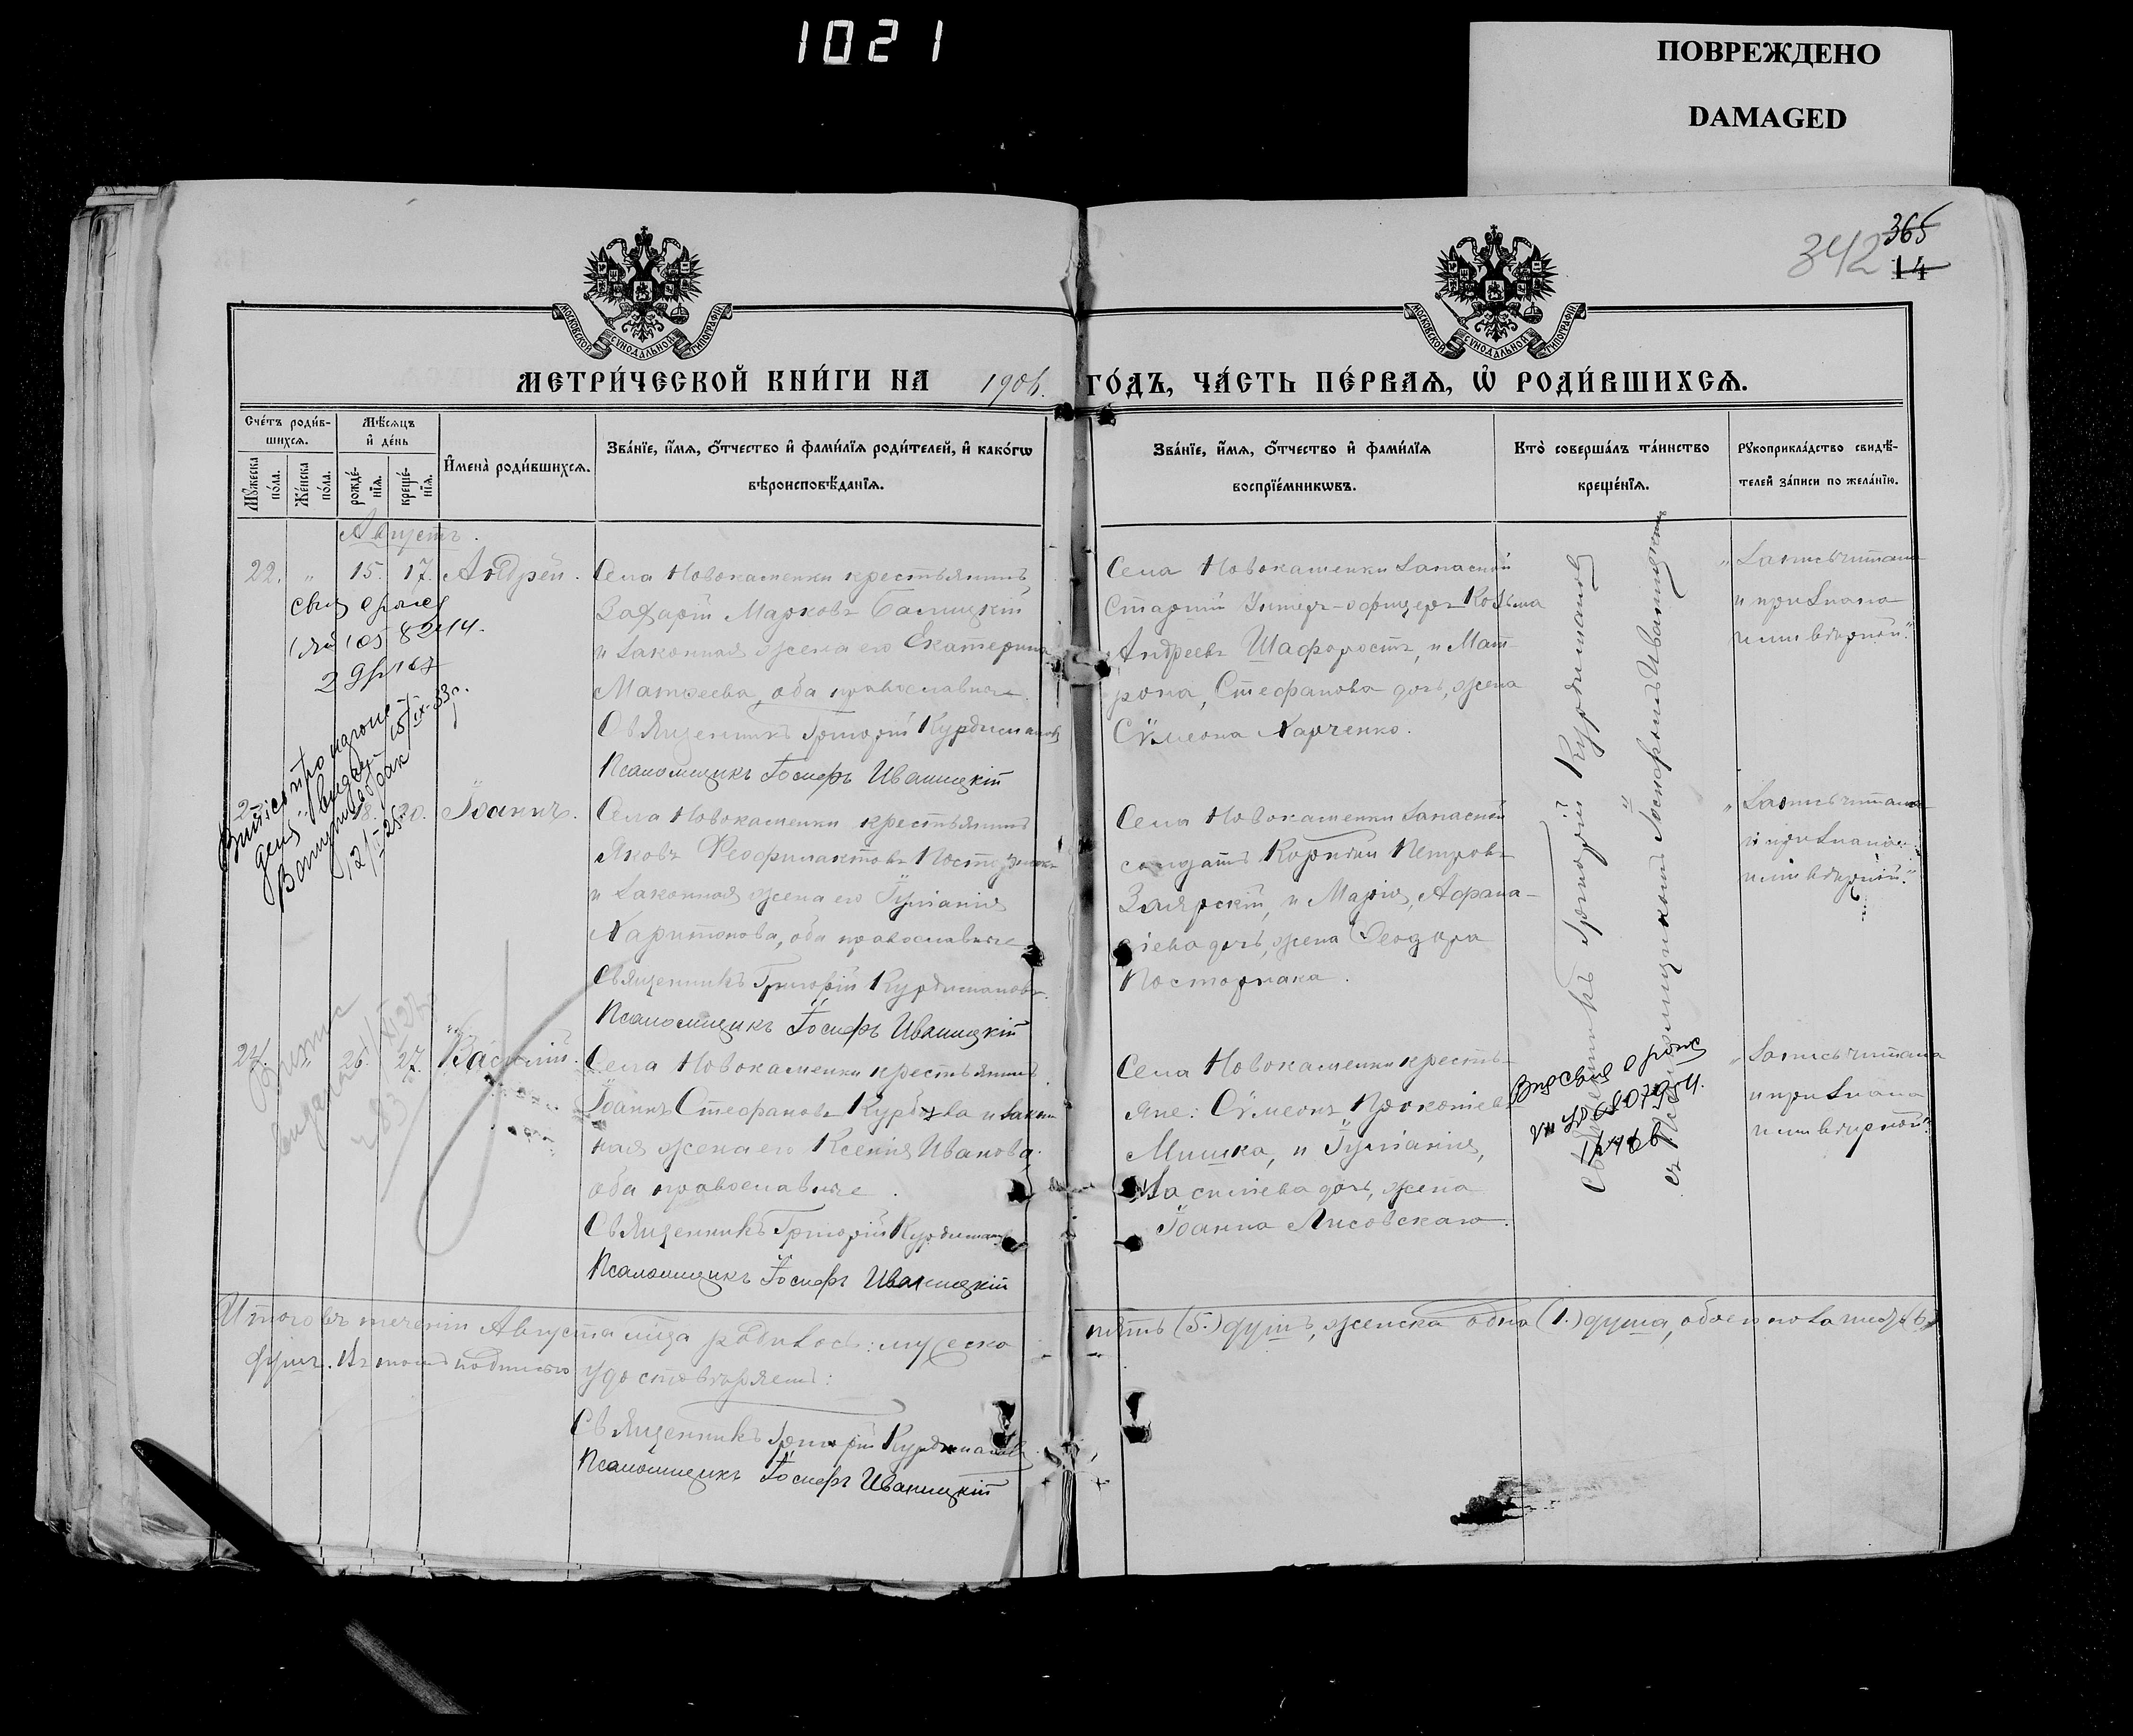 1021
ПОВРЕЖДЕНО
DAMAGED
342 365
14
МОСКОВСКОЙ СѴНОДАЛЬНОЙ ТИПОГРАФІИ
МОСКОВСКОЙ СѴНОДАЛЬНОЙ ТИПОГРАФІИ
МЕТРИ́ЧЕСКОЙ КНИ́ГИ НА 1906. ГО́ДЪ, ЧА́СТЬ ПЕ́РВАѦ, Ѽ РОДИ́ВШИХСѦ.
Сче́тъ роди́в-
шихсѧ.
Мꙋ́жеска по́ла.
Же́нска по́ла.
Мѣ́сѧцъ и҆ де́нь
рожде́-
нїѧ.
креще́-
нїѧ.
И҆мена̀ роди́вшихсѧ.
Зва́нїе, и҆́мѧ, ѻ҆́тчество и҆ фами́лїѧ роди́телей, и҆ како́гѡ
вѣроисповѣ́данїѧ.
Зва́нїе, и҆́мѧ, ѻ҆́тчество и҆ фами́лїѧ
воспрїе́мникѡвъ.
Кто̀ соверша́лъ та́инство
креще́нїѧ.
Рꙋкоприкла́дство свидѣ́-
телей за́писи по жела́нїю.
Августъ.
22. " 15. 17. Андрей.
Села Новокаменки крестьянинъ
Захарій Марковъ Балицкій
и законная жена его Екатерина
Матвеева, оба православные.
Священникъ Григорій Курдимановъ
Псаломщикъ Іосифъ Иваницкій
Села Новокаменки запасной
Старшій Унтеръ-офицеръ Козьма
Андреевъ Шафоростъ, и Мат-
рона, Стефанова дочь, жена
Сѵмеона Харченко.
"Запись читана
и признана
ими верной".
18. 20. Іоаннъ.
Села Новокаменки крестьянинъ
Яковъ Феофилактовъ
и законная жена его Іуліанія
Харитонова, оба православные
Священникъ Григорій Курдимановъ.
Псаломщикъ Іосифъ Иваницкій
Села Новокаменки запасной
солдатъ Корнилій Петровъ
Заярскій, и Марія, Афана-
сіева дочь, жена Феодора
Посторнака.
"Запись читана
и признана
ими верной".
24. " 26. 27. Василій.
Села Новокаменки крестьянинъ
Іоаннъ Стефановъ и закон-
ная жена его Ксенія Иванова,
оба православные.
Священникъ Григорій Курдимановъ
Псаломщикъ Іосифъ Иваницкій
Села Новокаменки кресть-
яне: Сѵмеонъ Прокопіевъ
Мишка, и Іуліанія,
Василіева дочь, жена
Іоанна Лисовскаго.
"Запись читана
и признана
ими верной".
Священникъ Григорій Курдимановъ
съ Псаломщикомъ Іосифомъ Иваницкимъ
Итого въ теченіи Августа м-ца родилось: мужеска пять (5.) душъ, женска одна (1.) душа, обоего пола шесть (6)
душъ. Въ томъ подписью удостоверяемъ:
Священникъ Григорій Курдимановъ.
Псаломщикъ Іосифъ Иваницкій